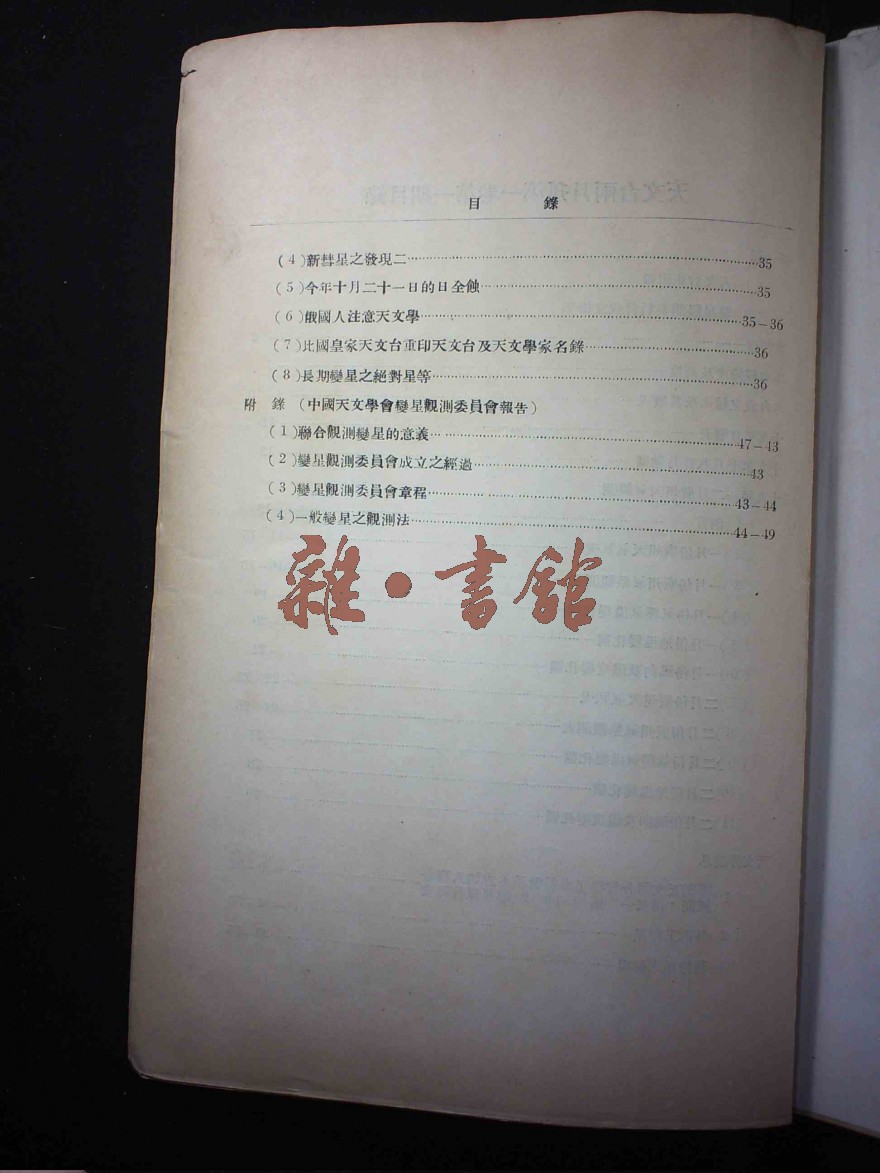 目 錄
(4)新彗星之發現二……35
(5)今年十月二十一日的日全蝕……35
(6)俄國人注意天文學……35–36
(7)比國皇家天文台重印天文台及天文學家名錄……36
(8)長期變星之絕對星等……36
附 錄 (中國天文學會變星觀測委員會報告)
(1)聯合觀測變星的意義……47–43
(2)變星觀測委員會成立之經過……43
(3)變星觀測委員會章程……43–44
(4)一般變星之觀測法……44–49
雜·書館